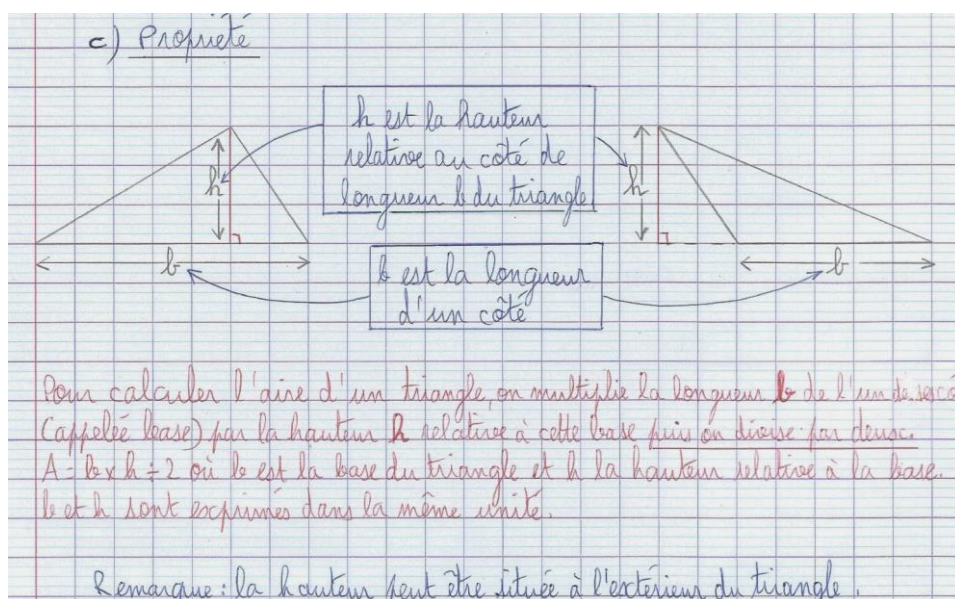 c) Propriété
h est la hauteur
relative au côté de
longueur b du triangle
h
h
b
b
b est la longueur
d'un côté
Pour calculer l'aire d'un triangle, on multiplie la longueur b de l'un de ses cô
(appelée base) par la hauteur h relative à cette base puis on divise par deux.
A = b x h ÷ 2 où b est la base du triangle et h la hauteur relative à la base.
b et h sont exprimés dans la même unité.
Remarque : la hauteur peut être située à l'extérieur du triangle.